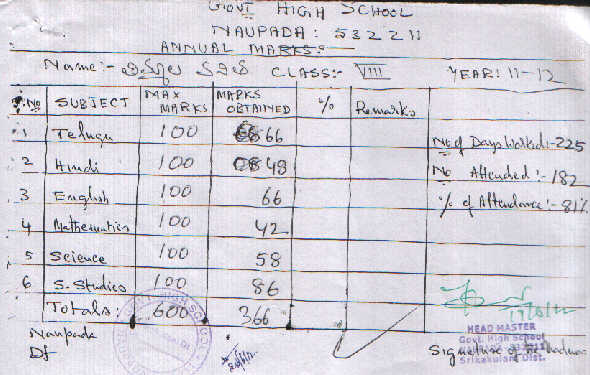 GOVT HIGH SCHOOL
NAUPADA: 532211
ANNUAL MARKS:
Name:- CLASS:- VIII YEAR: 11-12
S.No SUBJECT MAX MARKS MARKS OBTAINED % Remarks
1 Telugu 100 66
2 Hindi 100 48
3 English 100 66
4 Mathematics 100 42
5 Science 100 58
6 S. Studies 100 86
Totals: 600 366
No of Days Worked:- 225
No Attended:- 182
% of Attendance:- 81%
Naupada
Dt
HEAD MASTER
Govt. High School
Srikakulam Dist.
Signature of the